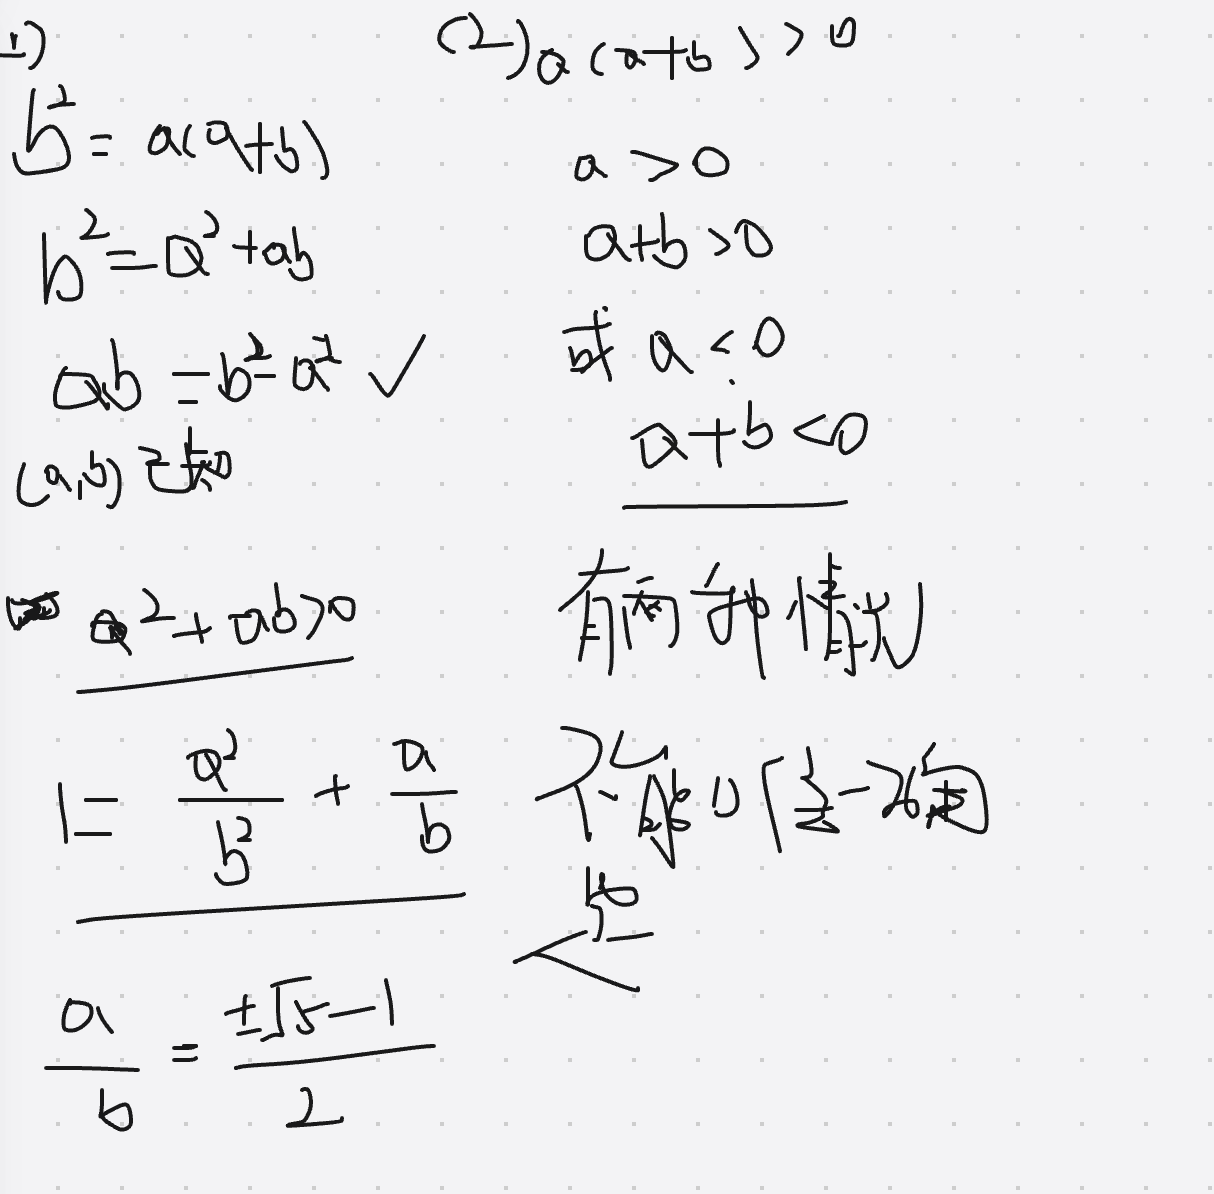 1)
b² = a(a+b)
b² = a² + ab
ab = b² - a² ✓
(a,b) 已知
a² + ab > 0
1 = a²/b² + a/b
a/b = (±√5 - 1)/2
(2) a(a+b) > 0
a > 0
a+b > 0
或 a < 0
a+b < 0
有两种情况
不能